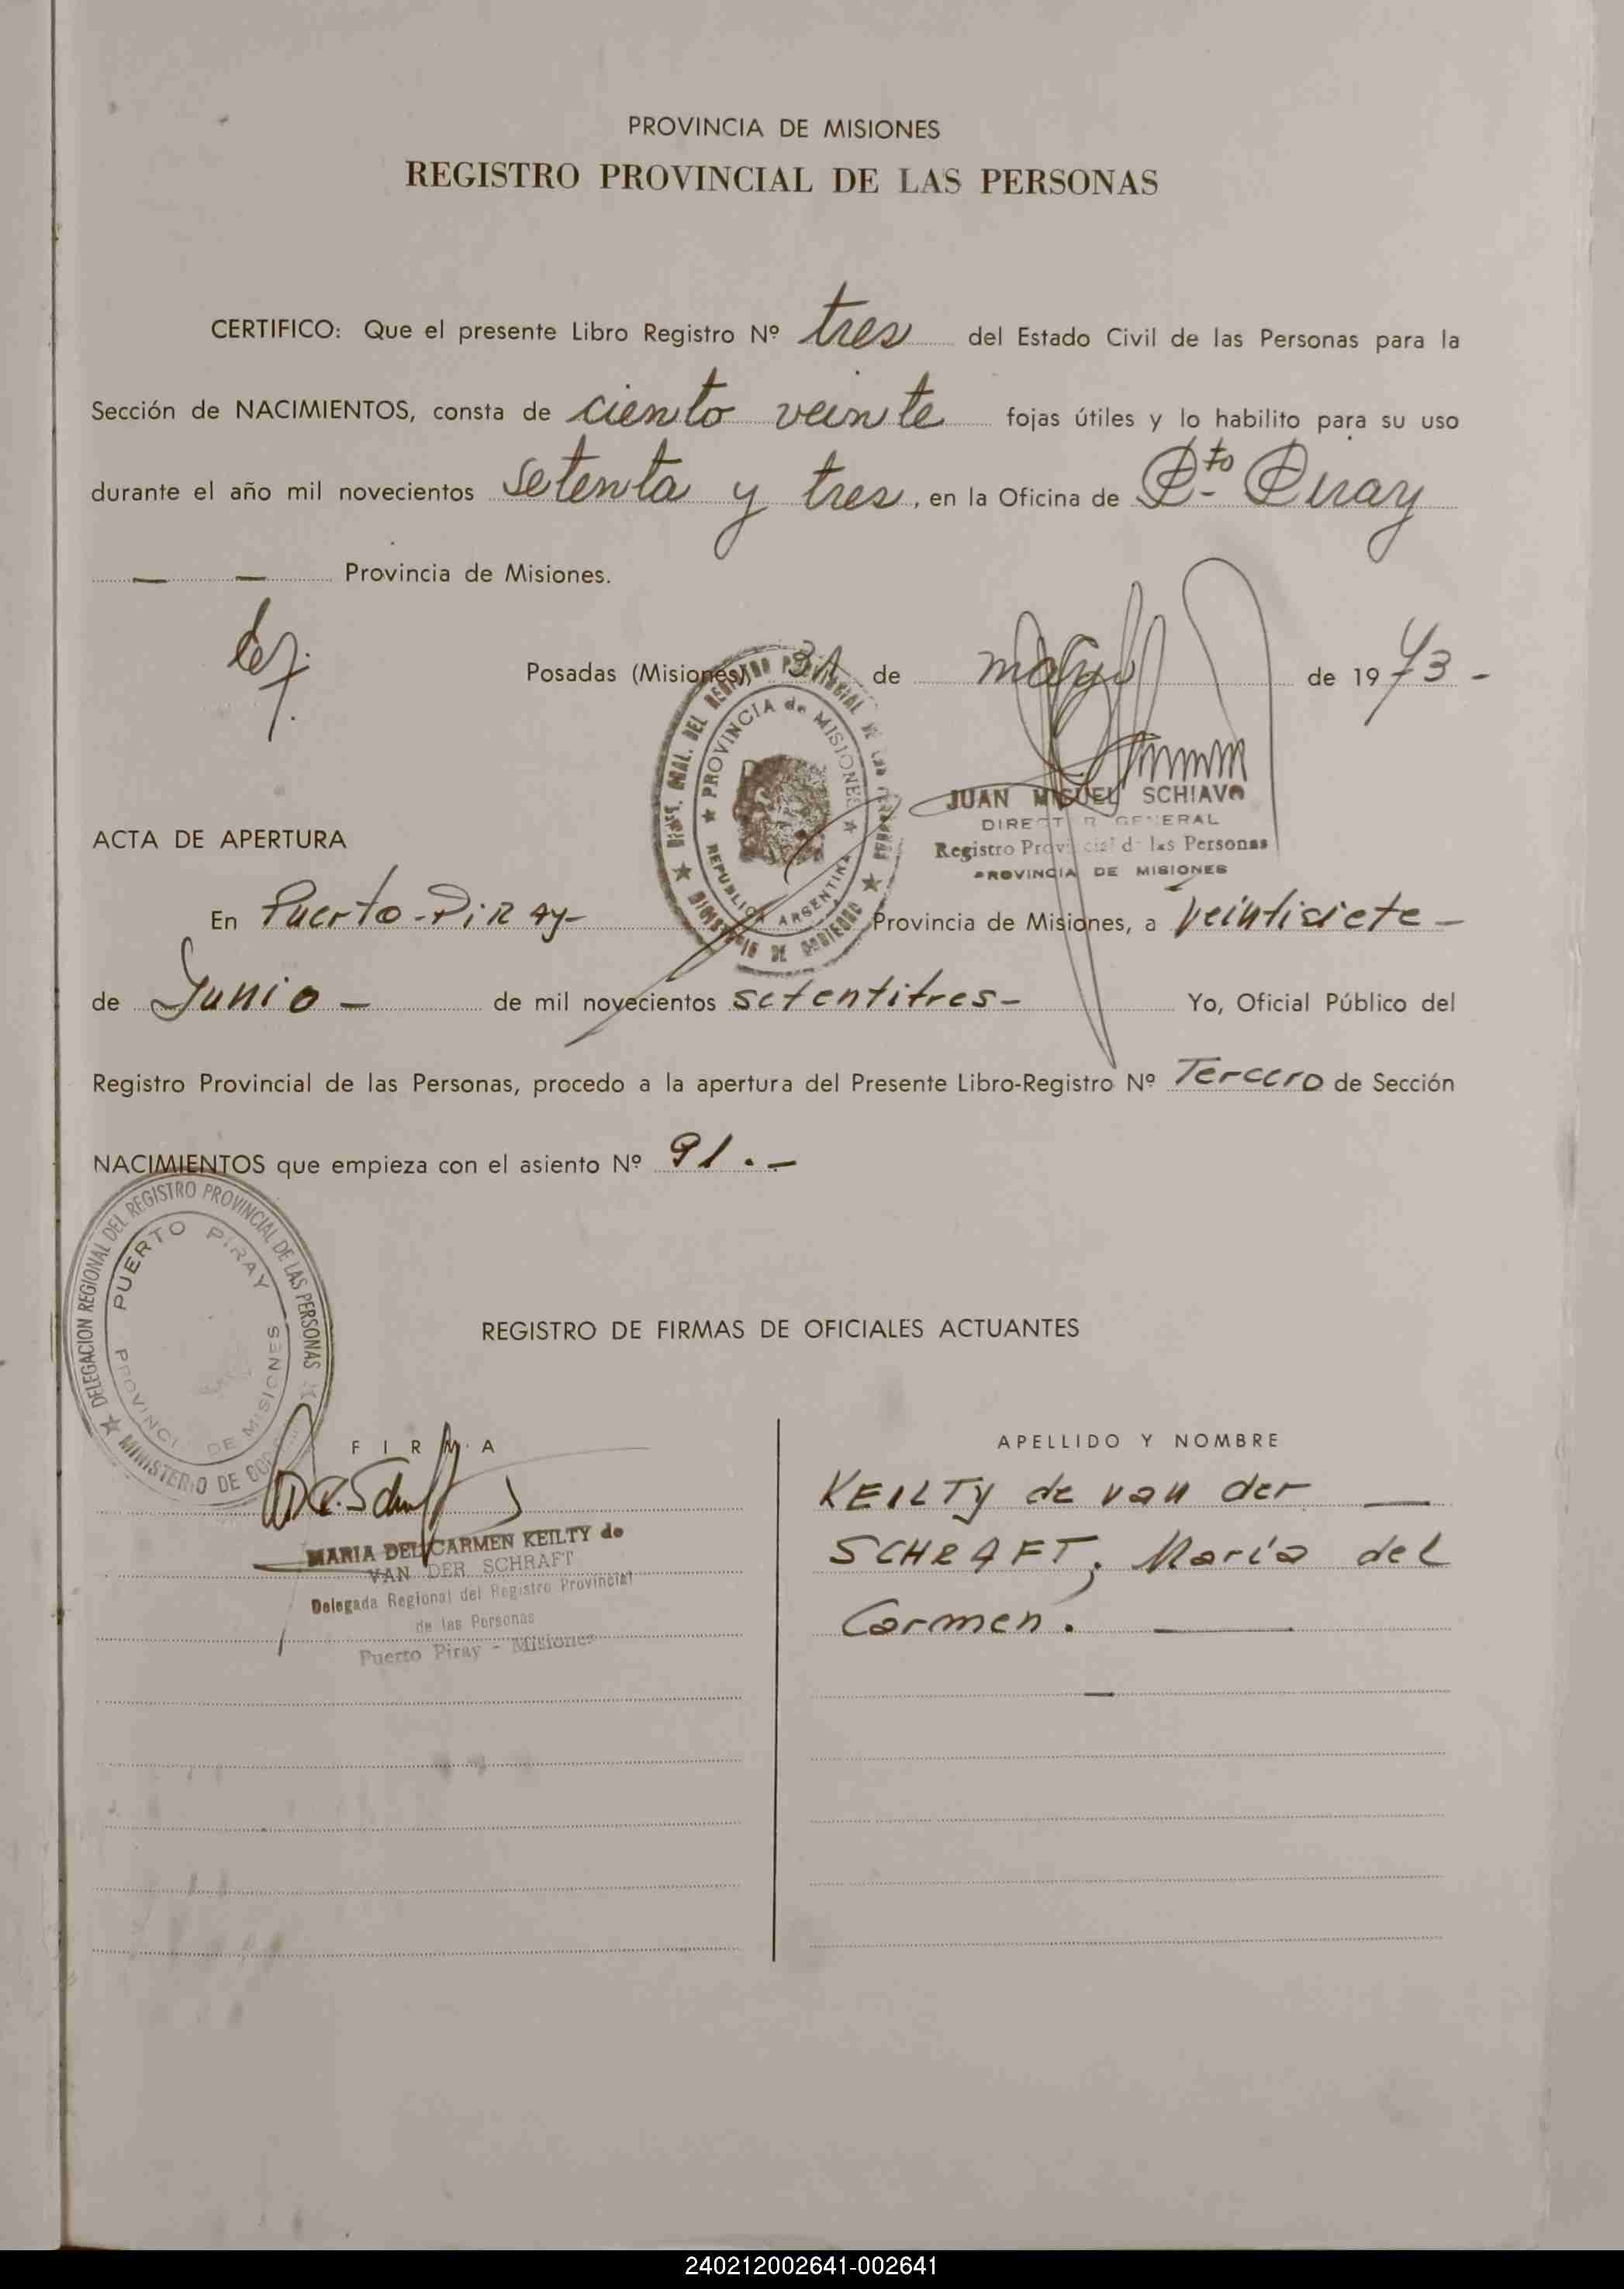 PROVINCIA DE MISIONES
REGISTRO PROVINCIAL DE LAS PERSONAS
CERTIFICO: Que el presente Libro Registro Nº tres del Estado Civil de las Personas para la
Sección de NACIMIENTOS, consta de ciento veinte fojas útiles y lo habilito para su uso
durante el año mil novecientos setenta y tres, en la Oficina de Pto Piray
— — Provincia de Misiones.
Posadas (Misiones), 31 de mayo de 1973 -
DIREC. GRAL. DEL REGISTRO PROVINCIAL DE LAS PERSONAS
PROVINCIA de MISIONES
REPUBLICA ARGENTINA
MINISTERIO DE GOBIERNO
JUAN MIGUEL SCHIAVO
DIRECTOR GENERAL
Registro Provincial de las Personas
PROVINCIA DE MISIONES
ACTA DE APERTURA
En Puerto-Piray- Provincia de Misiones, a veintisiete -
de Junio - de mil novecientos setentitres- Yo, Oficial Público del
Registro Provincial de las Personas, procedo a la apertura del Presente Libro-Registro Nº Tercero de Sección
NACIMIENTOS que empieza con el asiento Nº 91.-
DELEGACION REGIONAL DEL REGISTRO PROVINCIAL DE LAS PERSONAS
PUERTO PIRAY
PROVINCI DE MISIONES
MINISTERIO DE GOB
REGISTRO DE FIRMAS DE OFICIALES ACTUANTES
FIRMA
MARIA DEL CARMEN KEILTY de
VAN DER SCHRAFT
Delegada Regional del Registro Provincial
de las Personas
Puerto Piray - Misiones
APELLIDO Y NOMBRE
KEILTY de van der —
SCHRAFT, María del
Carmen. —
—
240212002641-002641